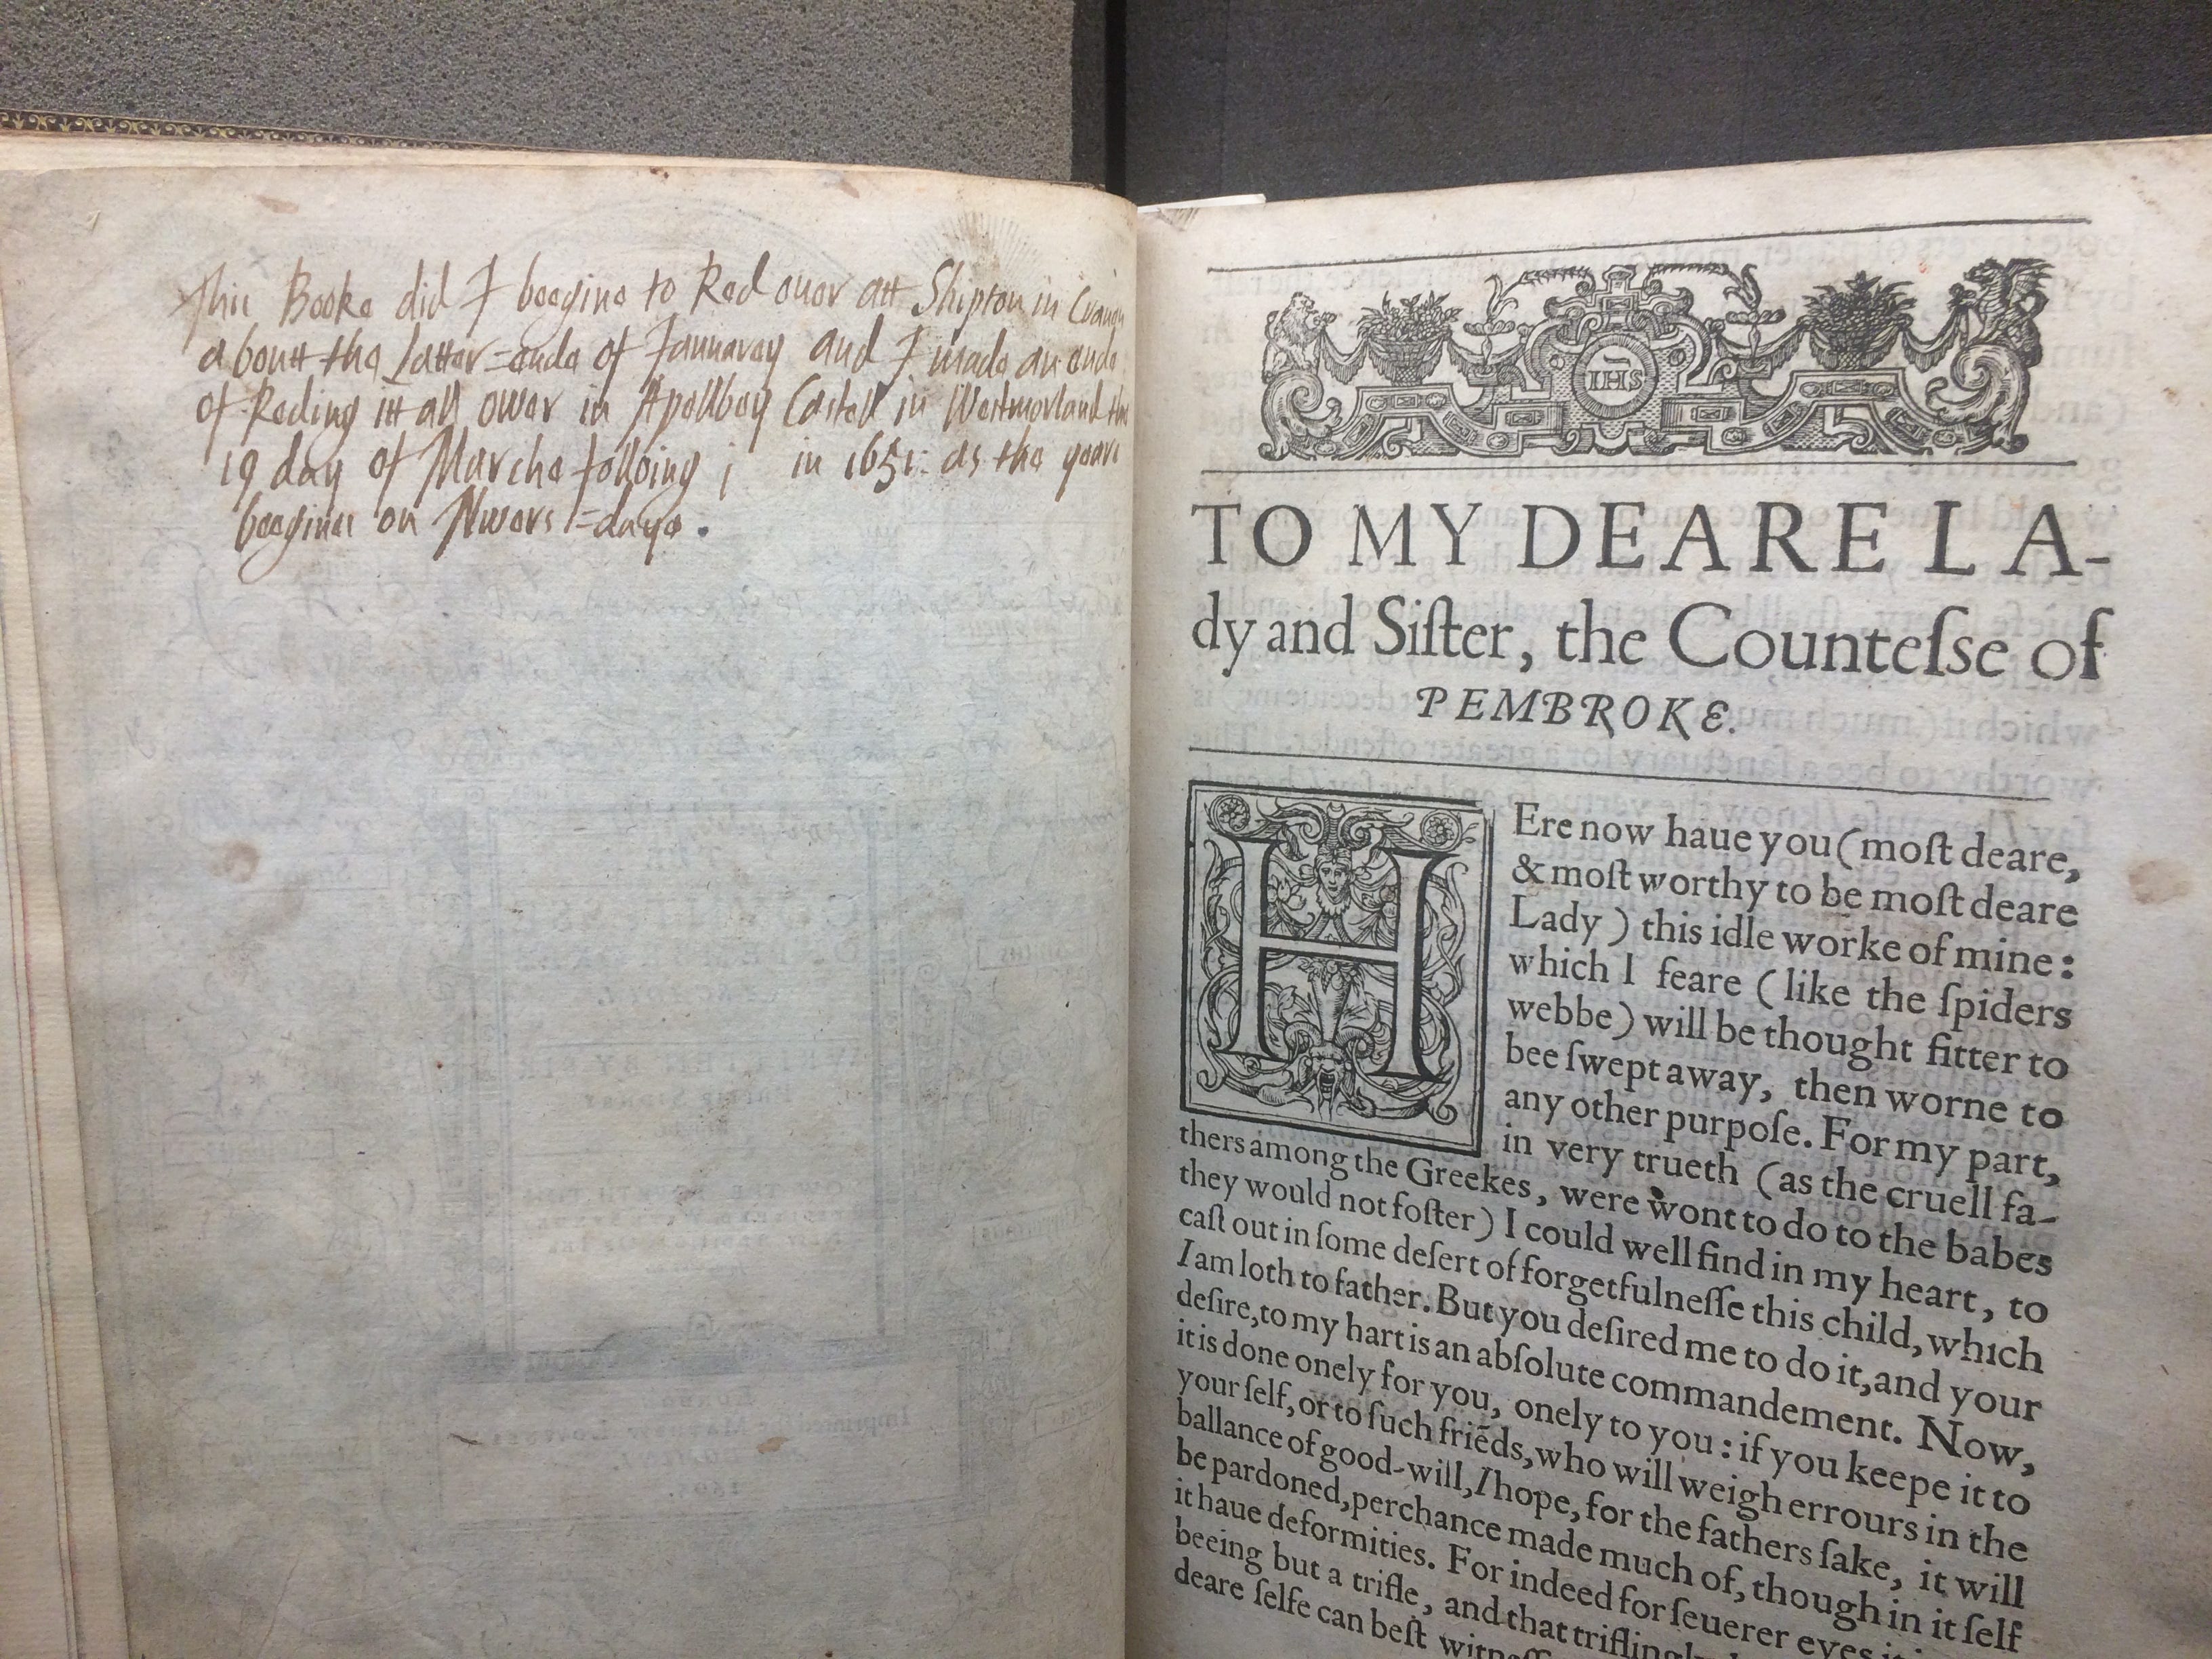 This Booke did I beegine to Red ouer att Shipton in Crauen
aboutt the Latter=ende of Jannarey and I made an ende
of Reding itt all ower in Apellbey Castell in Westmorland the
19 day of Marche folloing ; in 1651: as the yeare
beegines on Nwers=daye.
IHS
TO MY DEARE LA-
dy and Siſter, the Counteſse of
PEMBROKE.
HEre now haue you (moſt deare,
& moſt worthy to be moſt deare
Lady ) this idle worke of mine:
which I feare ( like the ſpiders
webbe) will be thought fitter to
bee ſwept away, then worne to
any other purpoſe. For my part,
in very trueth (as the cruell fa-
thers among the Greekes, were wont to do to the babes
they would not foſter) I could well find in my heart, to
caſt out in ſome deſert of forgetfulneſſe this child, which
I am loth to father. But you deſired me to do it, and your
deſire, to my hart is an abſolute commandement. Now,
it is done onely for you, onely to you: if you keepe it to
your ſelf, or to ſuch friẽds, who will weigh errours in the
ballance of good-will, I hope, for the fathers ſake, it will
be pardoned, perchance made much of, though in it ſelf
it haue deformities. For indeed for ſeuerer eyes it
beeing but a trifle, and that
deare ſelfe can beſt